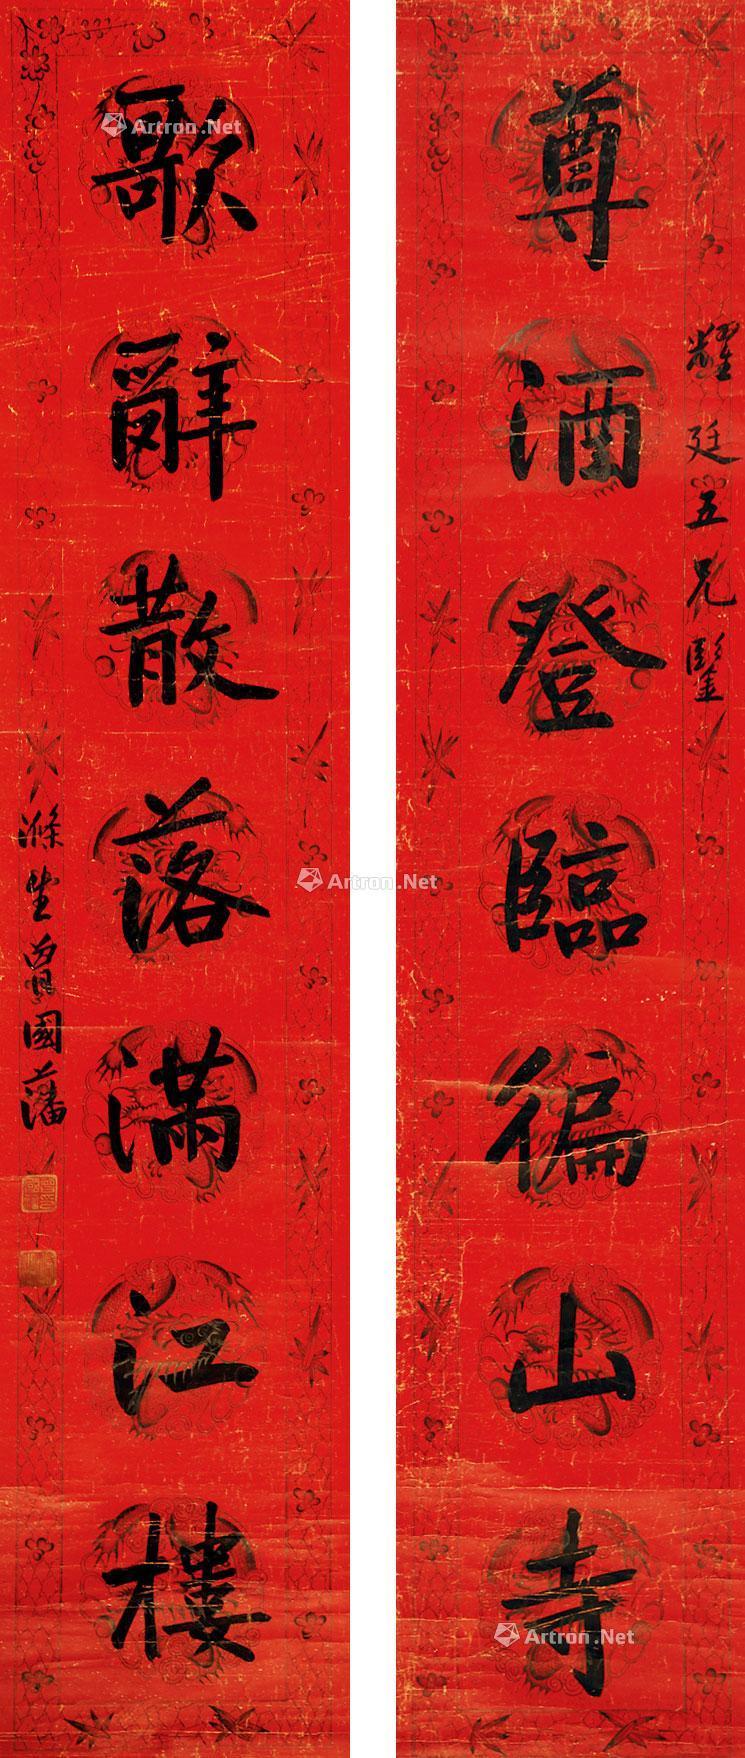 耀廷五兄鑒
尊酒登臨徧山寺
歌辭散落滿江樓
滌生曾國藩
Artron.Net
Artron.Net
Artron.Net